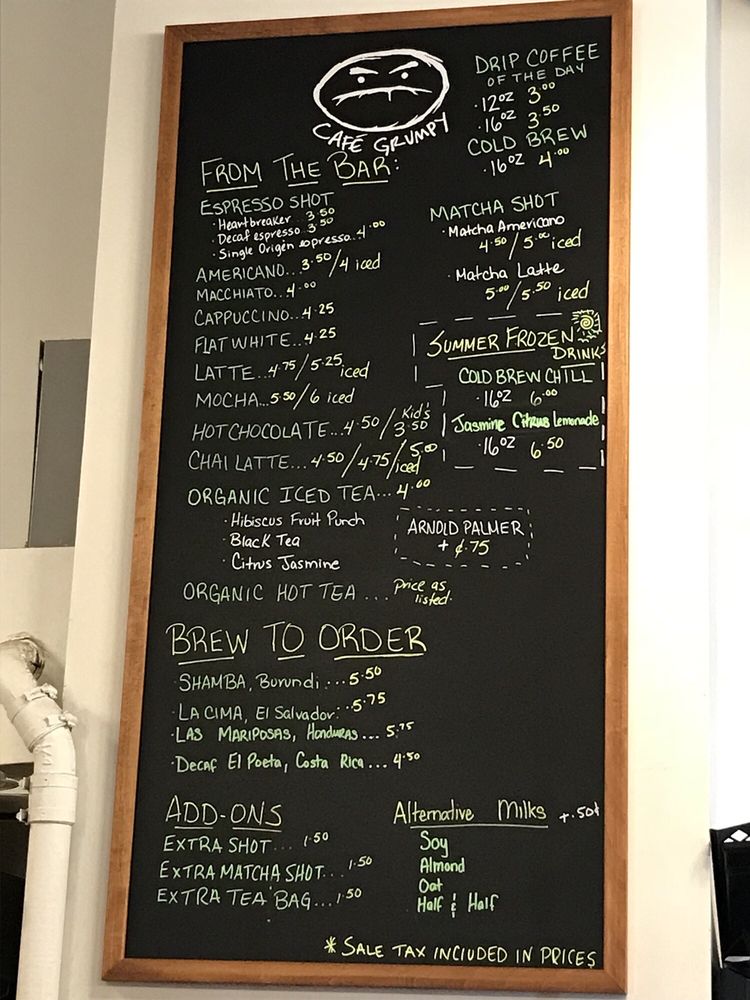 CAFÉ GRUMPY
DRIP COFFEE
OF THE DAY
·12oz 3.00
·16oz 3.50
COLD BREW
·16oz 4.00
FROM THE BAR:
ESPRESSO SHOT
·Heartbreaker..3.50
·Decaf espresso 3.50
·Single Origin espresso...4.00
AMERICANO...3.50/4 iced
MACCHIATO...4.00
CAPPUCCINO...4.25
FLAT WHITE...4.25
LATTE...4.75/5.25 iced
MOCHA...5.50/6 iced
HOT CHOCOLATE...4.50/Kid's 3.50
CHAI LATTE...4.50/4.75/5.00 iced
ORGANIC ICED TEA...4.00
·Hibiscus Fruit Punch
·Black Tea
·Citrus Jasmine
ORGANIC HOT TEA ... Price as
listed.
MATCHA SHOT
·Matcha Americano
4.50/5.00 iced
·Matcha Latte
5.00/5.50 iced
SUMMER FROZEN
DRINKS
COLD BREW CHILL
·16oz 6.00
Jasmine Citrus Lemonade
·16oz 6.50
ARNOLD PALMER
+ ¢.75
BREW TO ORDER
·SHAMBA, Burundi...5.50
·LA CIMA, El Salvador...5.75
·LAS MARIPOSAS, Honduras...5.75
·Decaf El Poeta, Costa Rica...4.50
ADD-ONS
EXTRA SHOT... 1.50
EXTRA MATCHA SHOT...1.50
EXTRA TEA BAG...1.50
Alternative Milks +.50¢
Soy
Almond
Oat
Half & Half
*SALE TAX INCLUDED IN PRICES